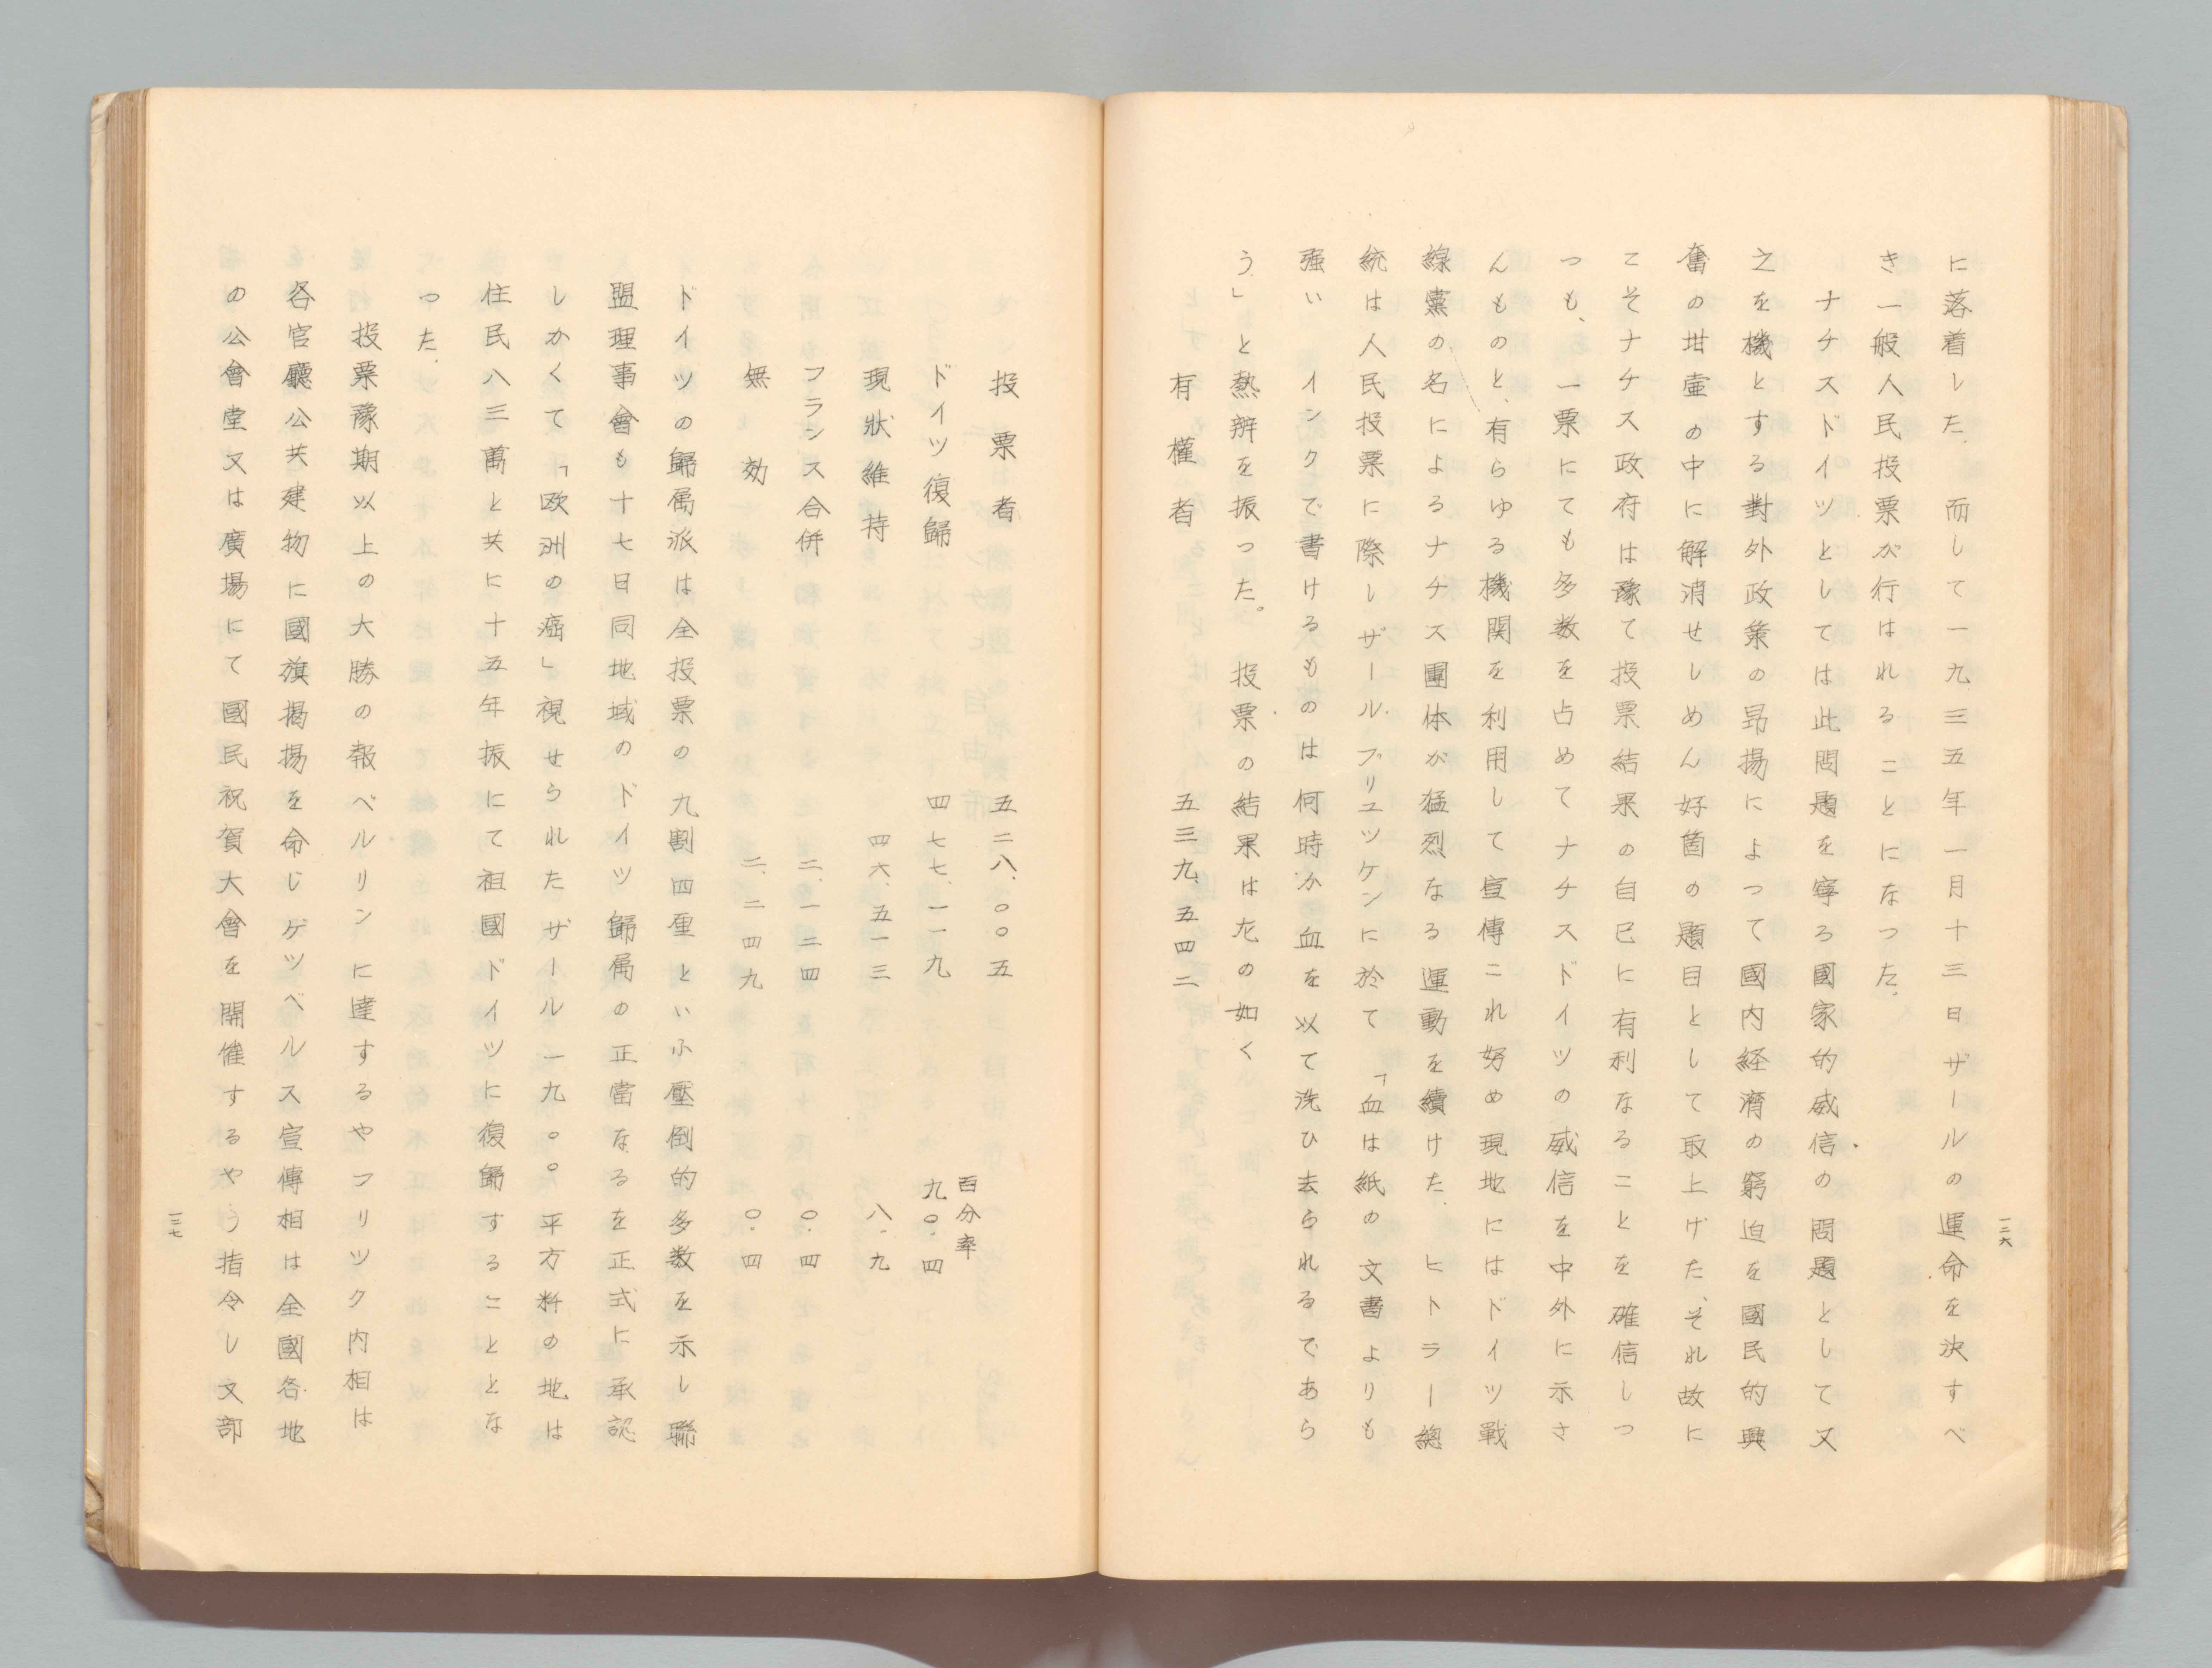 一三六
に落着した、而して一九三五年一月十三日ザールの運命を決すべ
き一般人民投票が行はれることになつた、
ナチスドイツとしては此問題を寧ろ國家的威信の問題として又
之を機とする對外政策の昻揚によつて國内経濟の窮迫を國民的興
奮の坩壷の中に解消せしめん好箇の題目として取上げた、それ故に
こそナチス政府は豫て投票結果の自己に有利なることを確信しつ
つも、一票にても多数を占めてナチスドイツの威信を中外に示さ
んものと、有らゆる機関を利用して宣傳これ努め現地にはドイツ戰
線黨の名によるナチス團体が猛烈なる運動を續けた、ヒトラー總
統は人民投票に際しザールブリユツケンに於て「血は紙の文書よりも
强い インクで書けるものは何時か血を以て洗ひ去られるであら
う」と熱辨を振つた。投票の結果は左の如く
有權者 五三九、五四二
投票者 五二八、〇〇五
百分率
ドイツ復歸 四七七、一一九 九〇・四
現狀維持 四六、五一三 八・九
フランス合併 二、一二四 〇・四
無効 二、二四九 〇・四
ドイツの歸属派は全投票の九割四厘といふ壓倒的多数を示し聯
盟理事會も十七日同地域のドイツ歸属の正當なるを正式に承認
しかくて「欧洲の癌」視せられたザール一九〇〇平方粁の地は
住民八三萬と共に十五年振にて祖國ドイツに復歸することとな
つた、
投票豫期以上の大勝の報ベルリンに達するやフリツク内相は
各官廳公共建物に國旗揭揚を命じゲツベルス宣傳相は全國各地
の公會堂又は廣場にて國民祝賀大會を開催するやう指令し文部
一三七